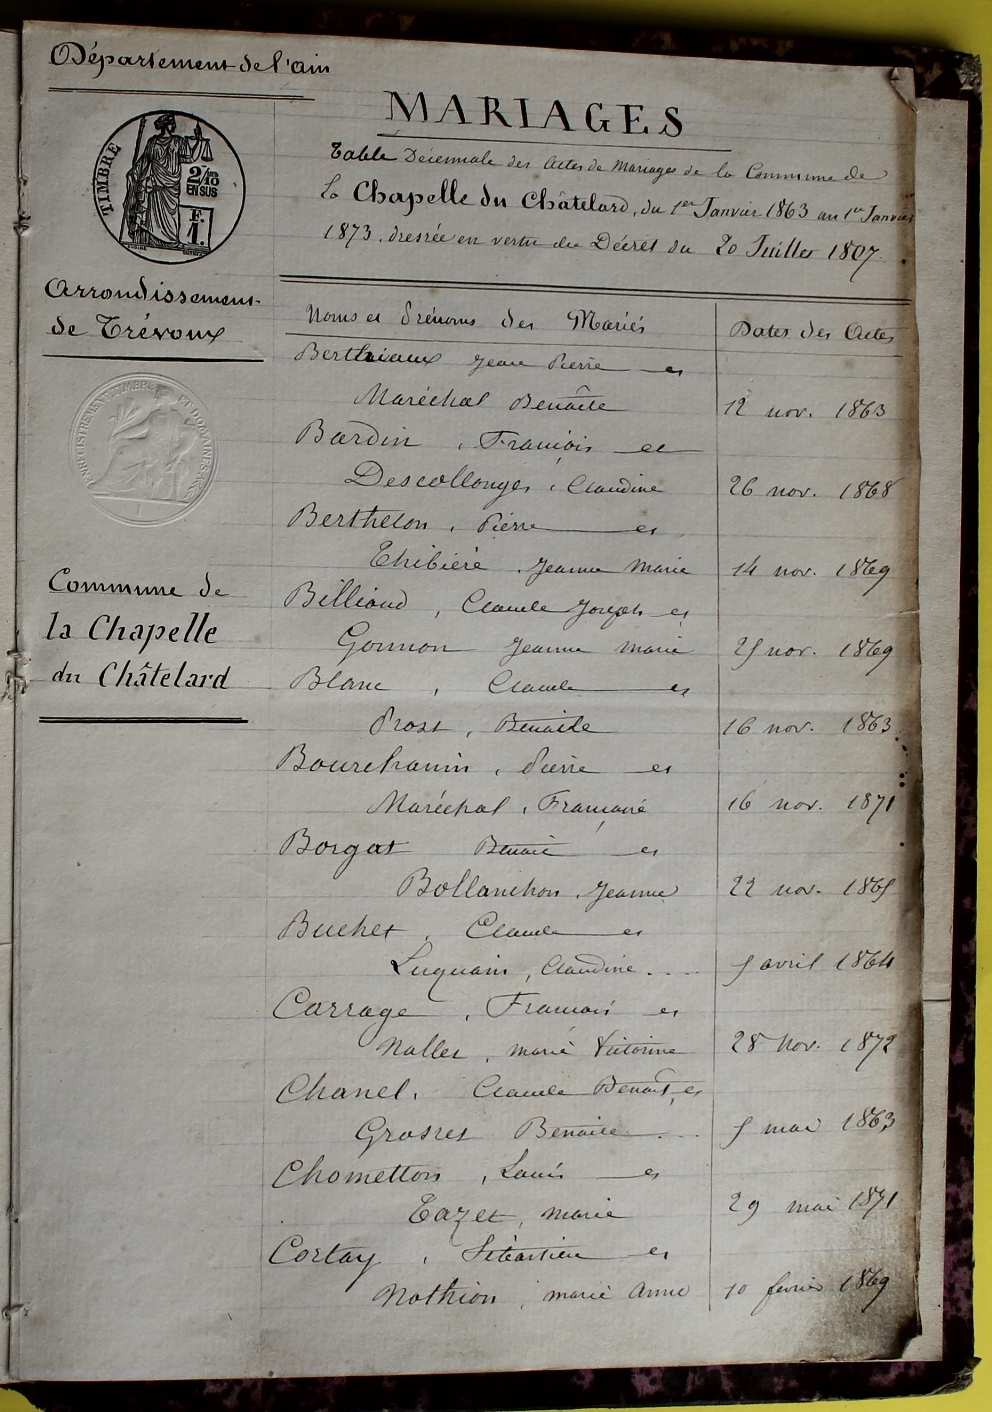 Département de l'ain
MARIAGES
Table Décennale des Actes de Mariages de la Commune de
la Chapelle du Châtelard, du 1er Janvier 1863 au 1er Janvier
1873. dressée en vertu du Décret du 20 Juillet 1807.
TIMBRE
2/10
EN SUS
F.
1.
Arrondissement
de Trévoux
Commune de
la Chapelle
du Châtelard
Noms et Prénoms des Mariés
Dates des Actes
Berthiaux Jean Pierre et
Maréchal Benoîte
12 nov. 1863
Bardin, François et
Descollonges, Claudine
26 nov. 1868
Berthelon, Pierre et
Thibière, Jeanne Marie
14 nov. 1869
Billioud, Claude Joseph et
Gonnon Jeanne Marie
25 nov. 1869
Blanc, Claude et
Prost, Benoite
16 nov. 1863
Bourchanin, Pierre et
Maréchal, Françoise
16 nov. 1871
Borgat Benoit et
Bollanchon, Jeanne
22 nov. 1865
Buchet, Claude et
Luquain, Claudine
5 avril 1864
Carrage, François et
Nallet, marie Victorine
28 Nov. 1872
Chanel, Claude Benoît, et
Grosset Benoite
5 mai 1863
Chometton, Louis et
Tazet, marie
29 mai 1871
Cortay, Sébastien et
Mathion, marie Anne
10 février 1869